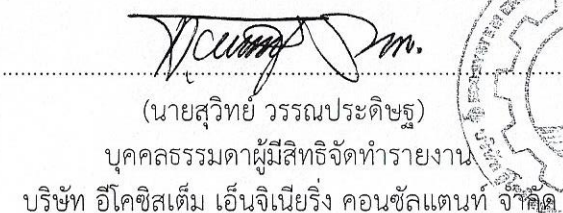 (นายสุวิทย์ วรรณประดิษฐ)
บุคคลธรรมดาผู้มีสิทธิจัดทำรายงาน
บริษัท อีโคซิสเต็ม เอ็นจิเนียริ่ง คอนซัลแตนท์ จำกัด